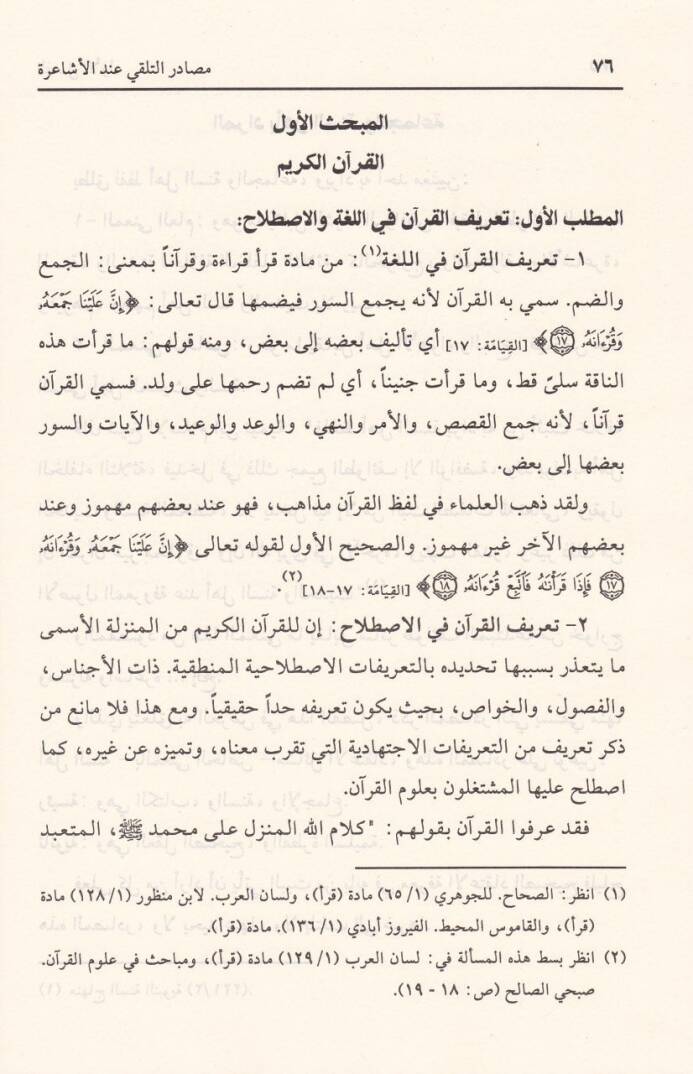 ٧٦ مصادر التلقي عند الأشاعرة
المبحث الأول
القرآن الكريم
المطلب الأول: تعريف القرآن في اللغة والاصطلاح:
١- تعريف القرآن في اللغة(١): من مادة قرأ قراءة وقرآناً بمعنى: الجمع
والضم. سمي به القرآن لأنه يجمع السور فيضمها قال تعالى: ﴿إِنَّ عَلَيْنَا جَمْعَهُۥ
وَقُرْءَانَهُۥ ١٧﴾ [القِيَامَة: ١٧] أي تأليف بعضه إلى بعض، ومنه قولهم: ما قرأت هذه
الناقة سلىً قط، وما قرأت جنيناً، أي لم تضم رحمها على ولد. فسمي القرآن
قرآناً، لأنه جمع القصص، والأمر والنهي، والوعد والوعيد، والآيات والسور
بعضها إلى بعض.
ولقد ذهب العلماء في لفظ القرآن مذاهب، فهو عند بعضهم مهموز وعند
بعضهم الآخر غير مهموز. والصحيح الأول لقوله تعالى ﴿إِنَّ عَلَيْنَا جَمْعَهُۥ وَقُرْءَانَهُۥ
١٧ فَإِذَا قَرَأْنَٰهُ فَٱتَّبِعْ قُرْءَانَهُۥ ١٨﴾ [القِيَامَة: ١٧-١٨](٢).
٢- تعريف القرآن في الاصطلاح: إن للقرآن الكريم من المنزلة الأسمى
ما يتعذر بسببها تحديده بالتعريفات الاصطلاحية المنطقية. ذات الأجناس،
والفصول، والخواص، بحيث يكون تعريفه حداً حقيقياً. ومع هذا فلا مانع من
ذكر تعريف من التعريفات الاجتهادية التي تقرب معناه، وتميزه عن غيره، كما
اصطلح عليها المشتغلون بعلوم القرآن.
فقد عرفوا القرآن بقولهم: "كلام الله المنزل على محمد ﷺ، المتعبد
(١) انظر: الصحاح. للجوهري (٦٥/١) مادة (قرأ)، ولسان العرب. لابن منظور (١٢٨/١) مادة
(قرأ)، والقاموس المحيط. الفيروز أبادي (١٣٦/١). مادة (قرأ).
(٢) انظر بسط هذه المسألة في: لسان العرب (١٢٩/١) مادة (قرأ)، ومباحث في علوم القرآن.
صبحي الصالح (ص: ١٨ - ١٩).